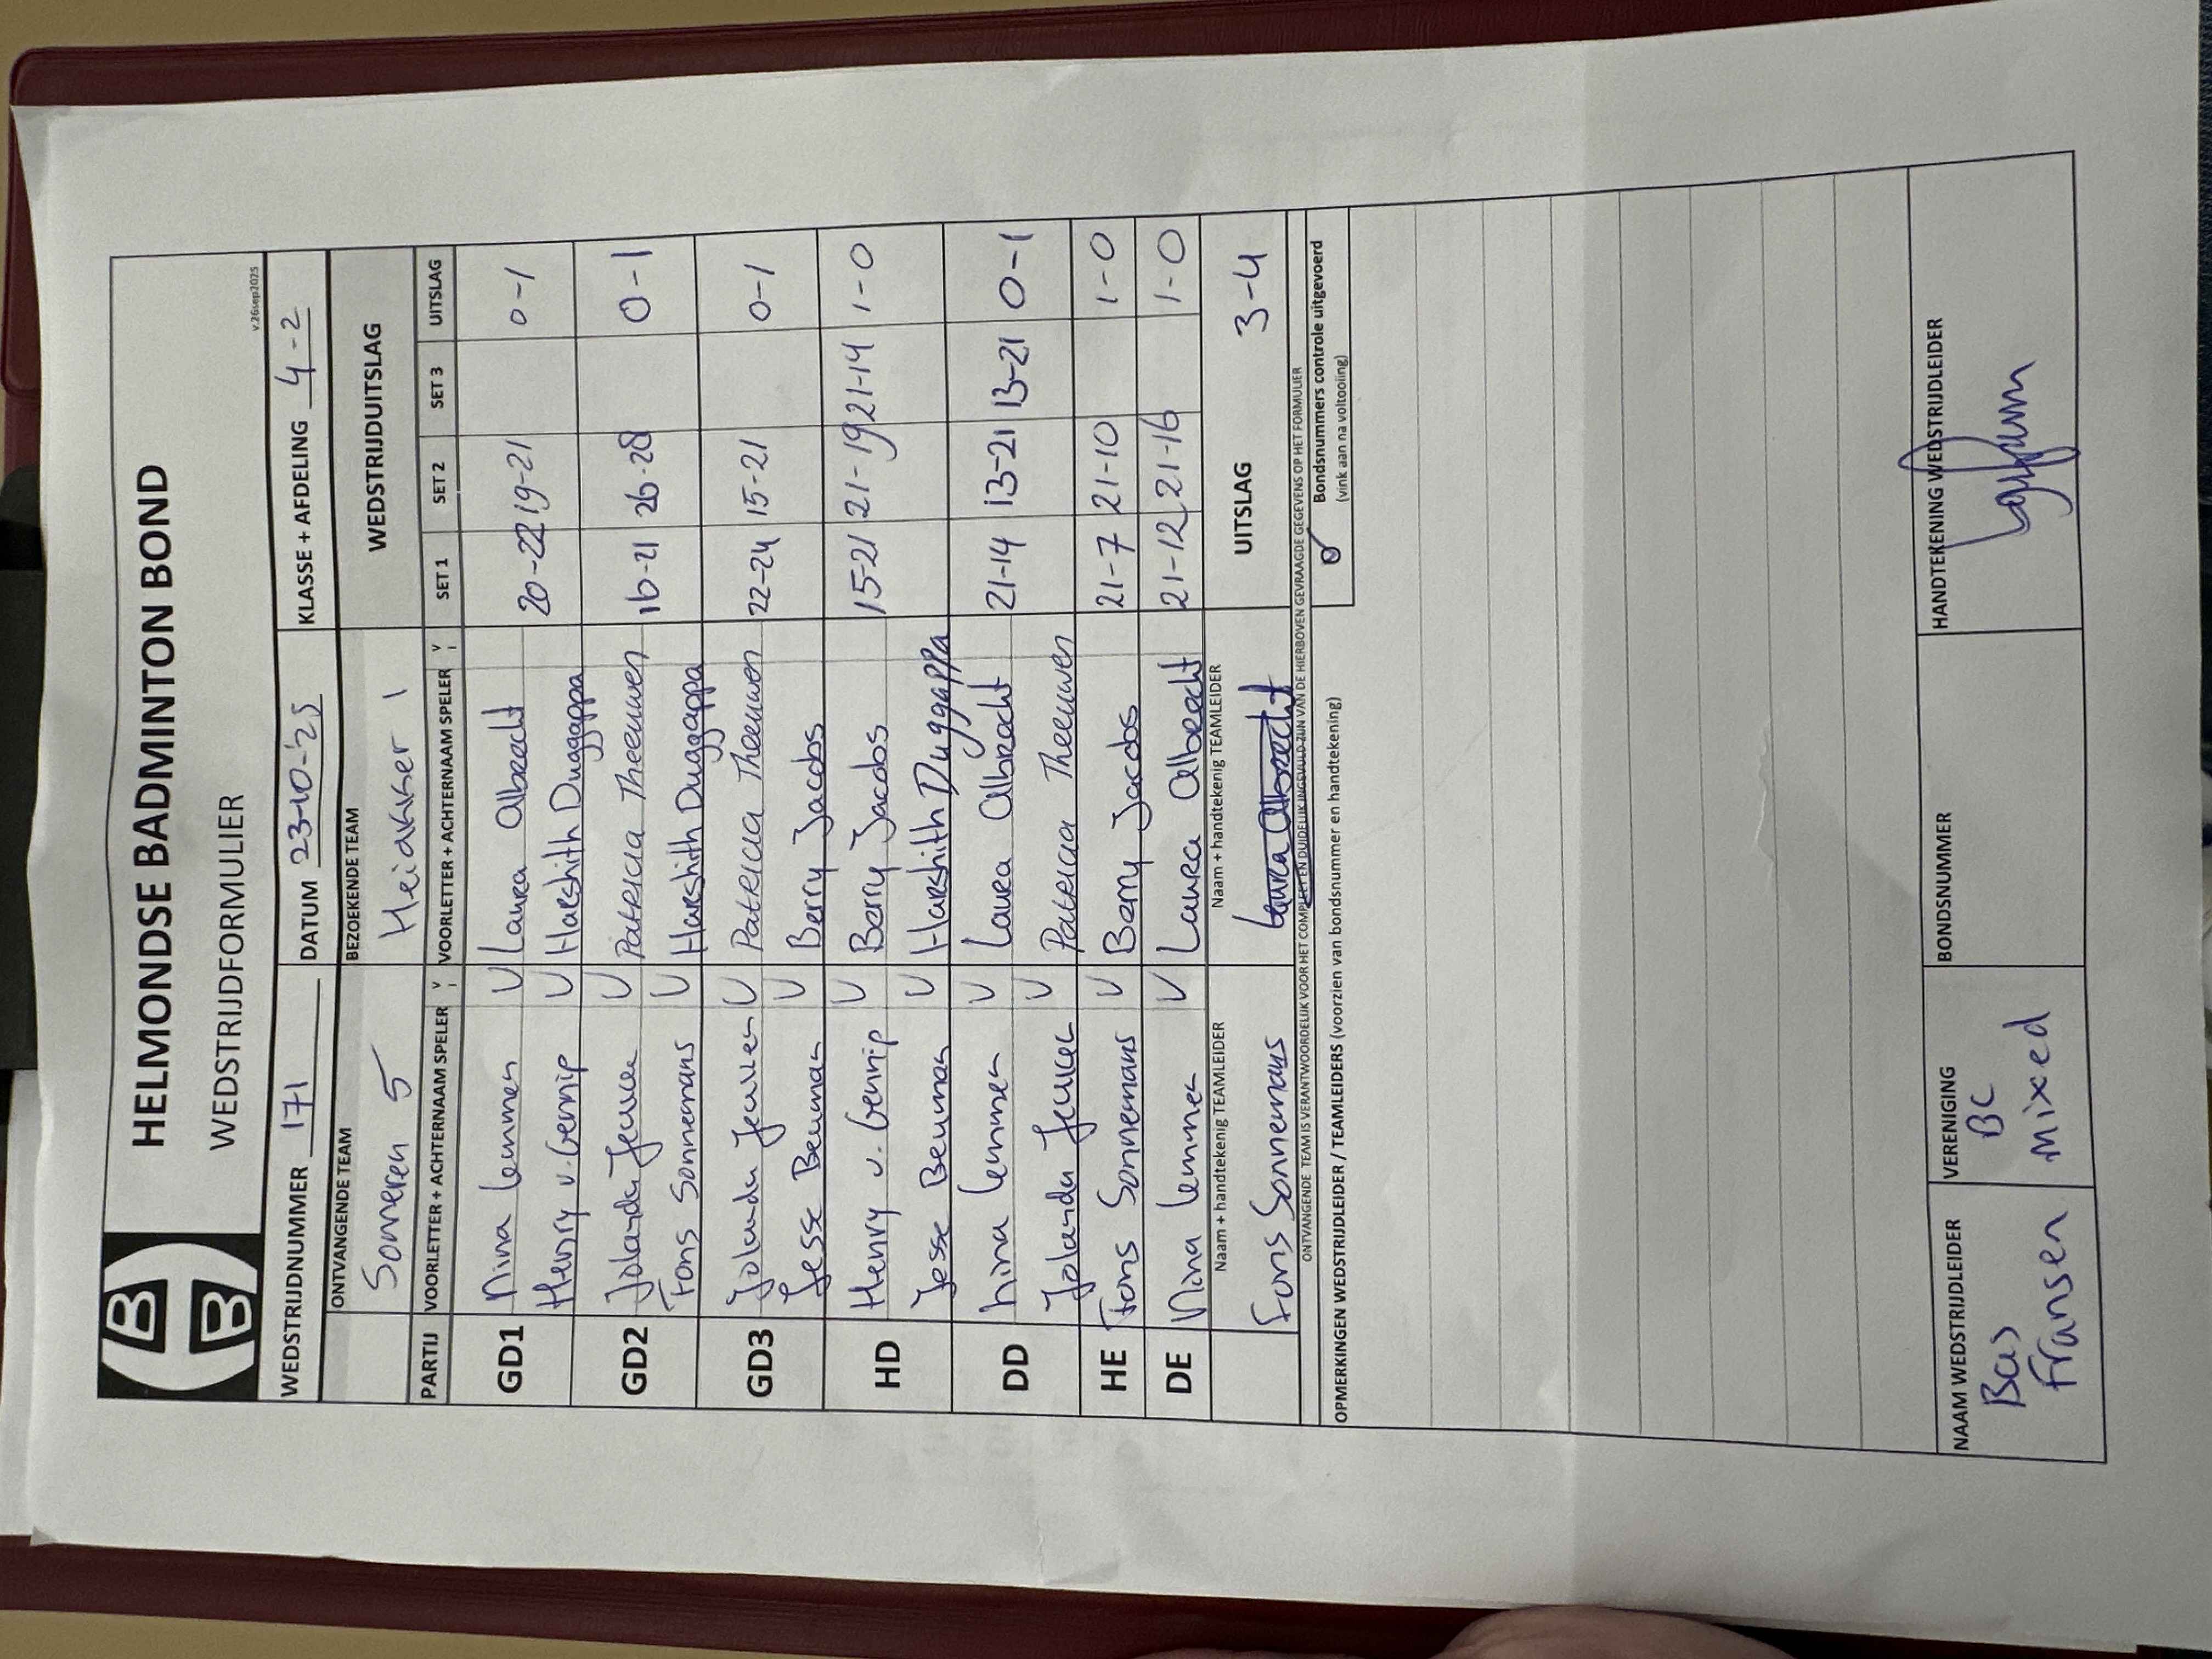 HELMONDSE BADMINTON BOND
WEDSTRIJDFORMULIER
v.26sep2025
WEDSTRIJDNUMMER 171 DATUM 23-10-'25 KLASSE + AFDELING 4-2
ONTVANGENDE TEAM BEZOEKENDE TEAM WEDSTRIJDUITSLAG
Someren 5 Heidakker 1
PARTIJ VOORLETTER + ACHTERNAAM SPELER V VOORLETTER + ACHTERNAAM SPELER V SET 1 SET 2 SET 3 UITSLAG
GD1 Nina Lemmen V Laura Albrecht 20-22 19-21 0-1
Henry v. Gennip V Harshith Duggappa
GD2 Jolanda Jeuken V Patricia Theeuwen 16-21 26-28 0-1
Fons Sonnemans V Harshith Duggappa
GD3 Jolanda Jeuken V Patricia Theeuwen 22-24 15-21 0-1
Jesse Beuman V Berry Jacobs
HD Henry v. Gennip V Berry Jacobs 15-21 21-19 21-14 1-0
Jesse Beuman V Harshith Duggappa
DD Nina Lemmen V Laura Albrecht 21-14 13-21 13-21 0-1
Jolanda Jeuken V Patricia Theeuwen
HE Fons Sonnemans V Berry Jacobs 21-7 21-10 1-0
DE Nina Lemmen V Laura Albrecht 21-12 21-16 1-0
Naam + handtekenig TEAMLEIDER Naam + handtekenig TEAMLEIDER UITSLAG 3-4
Fons Sonnemans Laura Albrecht
ONTVANGENDE TEAM IS VERANTWOORDELIJK VOOR HET COMPLEET EN DUIDELIJK INGEVULD ZIJN VAN DE HIERBOVEN GEVRAAGDE GEGEVENS OP HET FORMULIER
OPMERKINGEN WEDSTRIJDLEIDER / TEAMLEIDERS (voorzien van bondsnummer en handtekening)
Bondsnummers controle uitgevoerd
(vink aan na voltooiing)
NAAM WEDSTRIJDLEIDER VERENIGING BONDSNUMMER HANDTEKENING WEDSTRIJDLEIDER
Bas BC
Fransen mixed